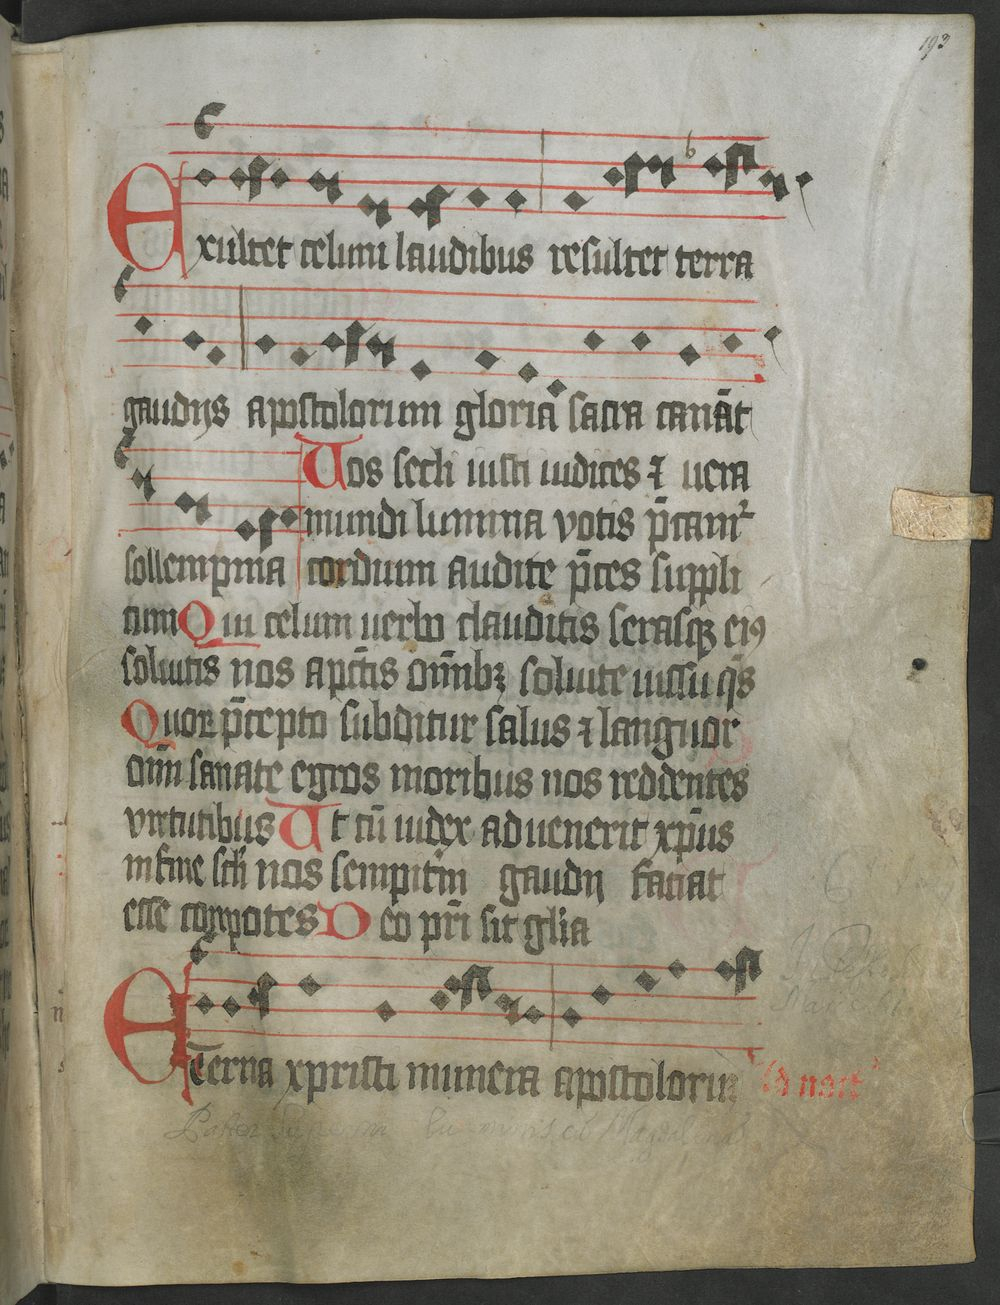 193
Exultet celum laudibus resultet terra
gaudijs apostolorum gloria sacra canāt
sollempnia
Vos secli iusti iudices ⁊ uera
mundi lumina votis p̄camꝰ
cordium audite p̄ces suppli
cum Qui celum uerbo clauditis serasqꝫ eiꝰ
soluitis nos a pc̄tis om̄ibꝫ soluite iussu q̄s
Quoꝝ p̄cepto subditur salus ⁊ languor
om̄i sanate egros moribus nos reddentes
virtutibus Vt cū iudex aduenerit xp̄us
in fine scl̄i nos sempit̄ni gaudij faciat
esse compotes Deo pr̄i sit gl̄ia
Eterna xpristi munera apostolorū
Ad noct̄